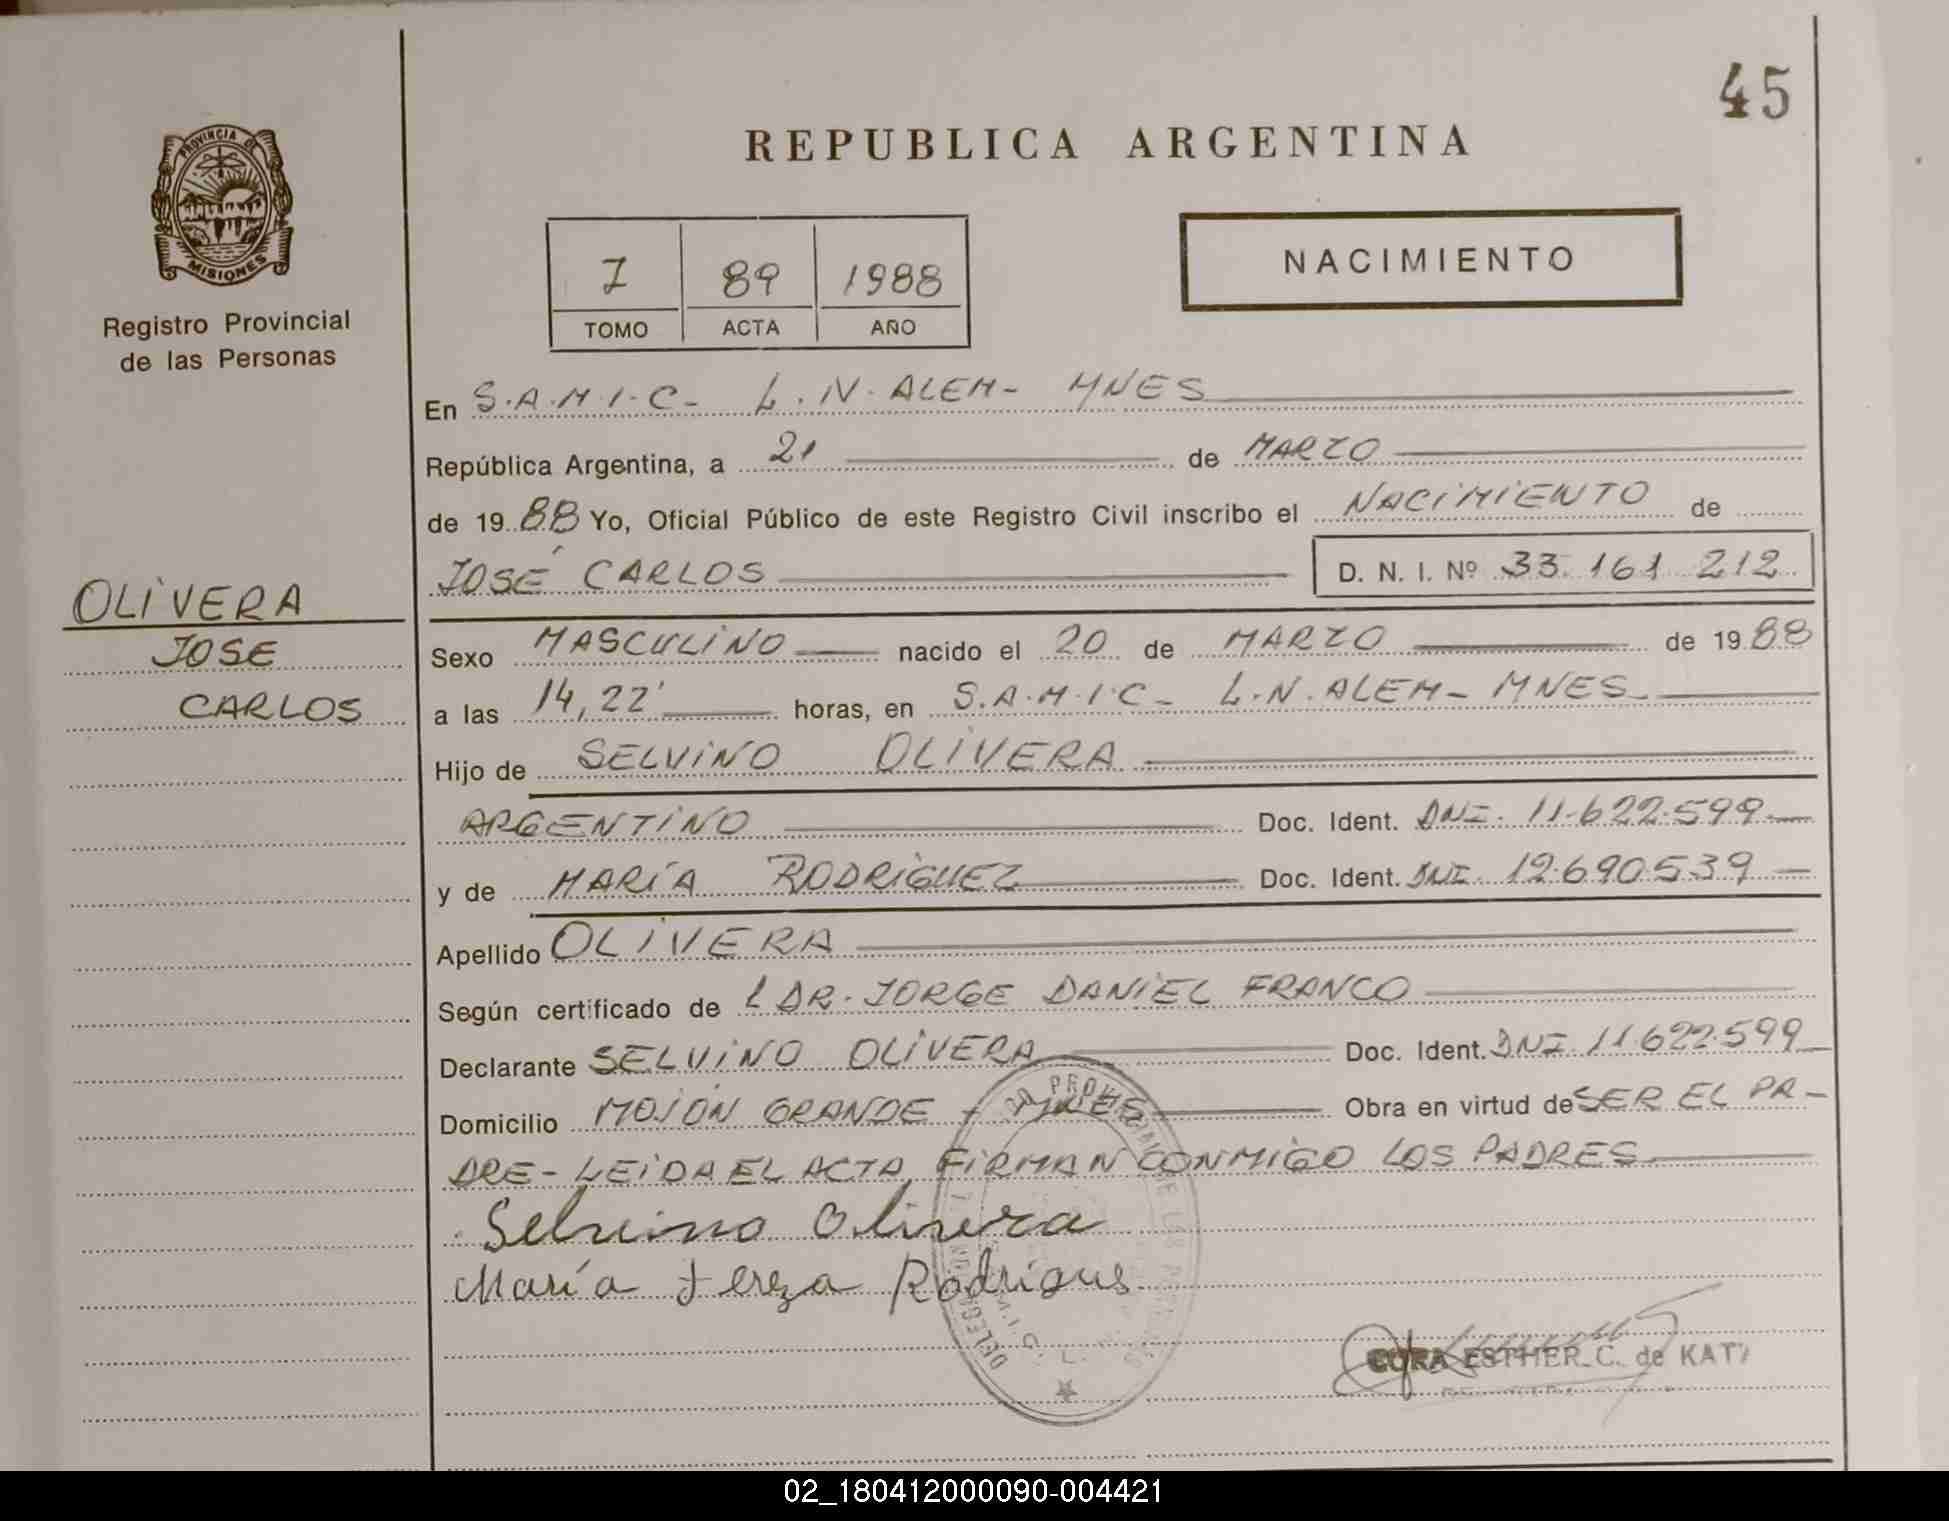 45
PROVINCIA DE
MISIONES
Registro Provincial
de las Personas
REPUBLICA ARGENTINA
7 89 1988
TOMO ACTA AÑO
NACIMIENTO
En S.A.M.I.C- L.N.ALEM- MNES
República Argentina, a 21 de MARZO
de 1988 Yo, Oficial Público de este Registro Civil inscribo el NACIMIENTO de
JOSÉ CARLOS D. N. I. Nº 33.161.212
OLIVERA
JOSE
CARLOS
Sexo MASCULINO nacido el 20 de MARZO de 1988
a las 14,22' horas, en S.A.M.I.C- L.N.ALEM- MNES
Hijo de SELVINO OLIVERA
ARGENTINO Doc. Ident. DNI. 11.622.599
y de MARÍA RODRIGUEZ Doc. Ident. DNI. 12.690.539
Apellido OLIVERA
Según certificado de L DR. JORGE DANIEL FRANCO
Declarante SELVINO OLIVERA Doc. Ident. DNI 11.622.599
Domicilio MOJÓN GRANDE - MNES Obra en virtud de SER EL PA-
DRE- LEIDA EL ACTA FIRMAN CONMIGO LOS PADRES
Selvino Olivera
María Tereza Rodrigues
CORA ESTHER C. de
02_180412000090-004421